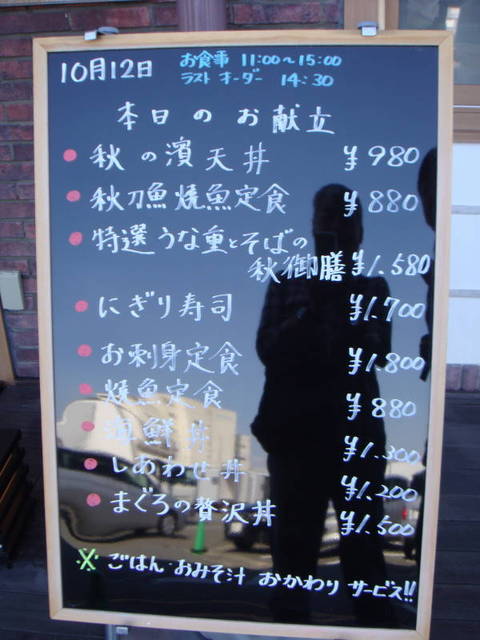 10月12日
お食事 11:00～15:00
ラストオーダー 14:30
本日のお献立
・秋の濱天丼 ¥980
・秋刀魚焼魚定食 ¥880
・特選うな重とそばの
秋御膳 ¥1.580
・にぎり寿司 ¥1.700
・お刺身定食 ¥1.800
・焼魚定食 ¥880
・海鮮丼 ¥1.300
・しあわせ丼 ¥1.200
・まぐろの贅沢丼 ¥1.500
※ごはん おみそ汁 おかわり サービス!!